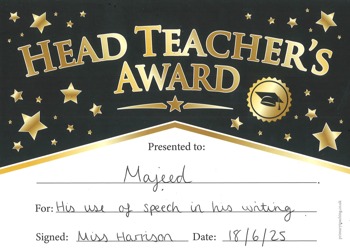 HEAD TEACHER'S
AWARD
Presented to:
Majeed
For: His use of speech in his writing.
Signed: Miss Harrison Date: 18/6/25